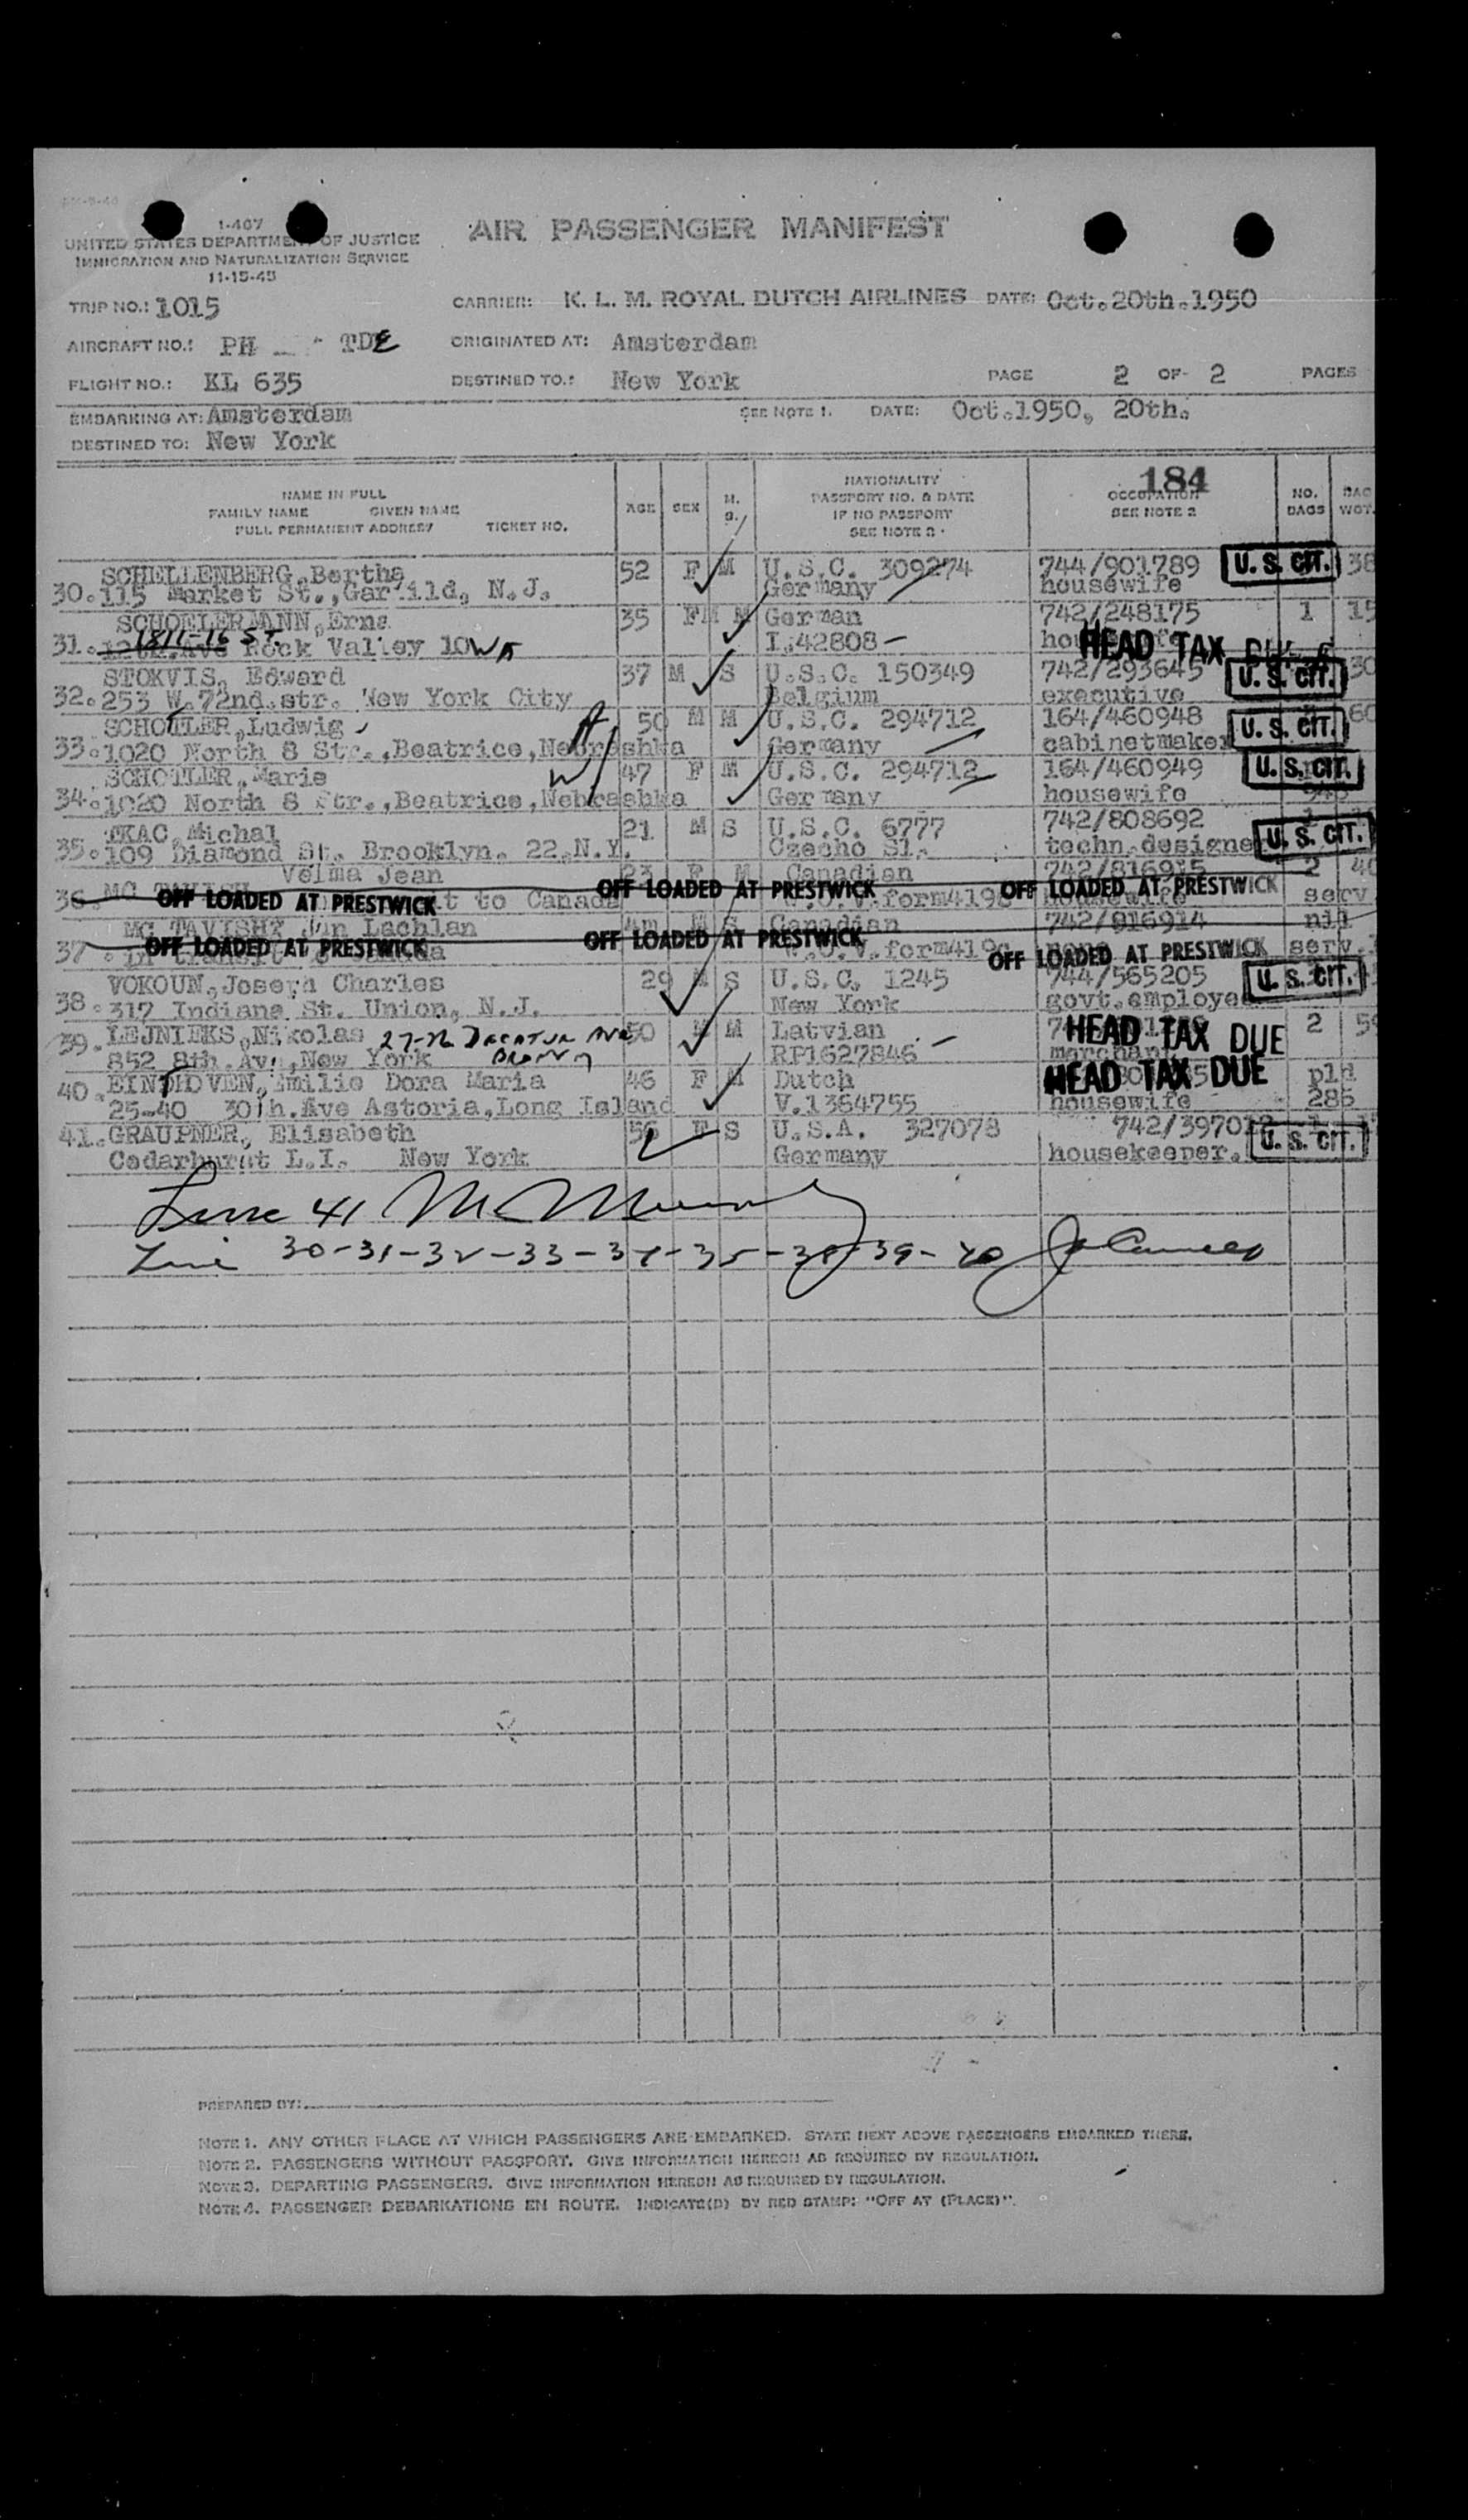 1-407
UNITED STATES DEPARTMENT OF JUSTICE
IMMIGRATION AND NATURALIZATION SERVICE
11-15-45
AIR PASSENGER MANIFEST
TRIP NO.: 1015 CARRIER: K. L. M. ROYAL DUTCH AIRLINES DATE: Oct.20th.1950
AIRCRAFT NO.: PH TDE ORIGINATED AT: Amsterdam
FLIGHT NO.: KL 635 DESTINED TO.: New York PAGE 2 OF 2 PAGES
EMBARKING AT: Amsterdam SEE NOTE 1. DATE: Oct.1950, 20th.
DESTINED TO: New York
184
NAME IN FULL
FAMILY NAME GIVEN NAME
FULL PERMANENT ADDRESS TICKET NO.
AGE SEX M. S.
NATIONALITY
PASSPORT NO. & DATE
IF NO PASSPORT
SEE NOTE 2
OCCUPATION
SEE NOTE 2
NO. BAGS
BAG WGT.
SCHELLENBERG, Bertha 52 F M U.S.C. 309274 744/901789 U. S. CIT. 38
30. 115 Market St., Garfild, N.J. Germany housewife
SCHOELERMANN, Erna 35 F M German 742/248175 1 15
1811-16 ST.
31. 12th.Ave Rock Valley IOWA I.42808 HEAD TAX
STOKVIS, Edward 37 M S U.S.C. 150349 742/293645 U. S. CIT. 30
32. 253 W. 72nd.str. New York City Belgium executive
SCHOTLER, Ludwig 50 M M U.S.C. 294712 164/460948 U. S. CIT. 60
33. 1020 North 8 Str., Beatrice, Nebrashka Germany cabinetmaker
SCHOTLER, Marie 47 F M U.S.C. 294712 164/460949 U. S. CIT.
34. 1020 North 8 Str., Beatrice, Nebrashka Germany housewife
TKAC, Michal 21 M S U.S.C. 6777 742/808692
35. 109 Diamond St. Brooklyn. 22.N.Y. Czecho Sl. techn.designer U. S. CIT.
Velma Jean 23 F M Canadian 742/816915 2 40
36. MC TAVISH to Canada form419 housewife serv.
OFF LOADED AT PRESTWICK OFF LOADED AT PRESTWICK OFF LOADED AT PRESTWICK
MC TAVISH Lachlan M S Canadian 742/816914 nil
37. in transit form419 none serv.
OFF LOADED AT PRESTWICK OFF LOADED AT PRESTWICK OFF LOADED AT PRESTWICK
VOKOUN, Joseph Charles 29 M S U.S.C. 1245 744/565205 U. S. CIT.
38. 317 Indiana St. Union, N.J. New York govt.employee
39. LEJNIEKS, Nikolas 50 M M Latvian HEAD TAX DUE 2
852 8th.Av., New York RP1627846 merchant
40. EINDHOVEN, Emilie Dora Maria 46 F M Dutch HEAD TAX DUE pld
25-40 30th.Ave Astoria, Long Island V.1364755 housewife 285
41. GRAUPNER, Elisabeth 56 F S U.S.A. 327078 742/397012
Cedarhurst L.I. New York Germany housekeeper. U. S. CIT.
Line 41
Line 30-31-32-33-34-35-38-39-40
PREPARED BY:
NOTE 1. ANY OTHER PLACE AT WHICH PASSENGERS ARE EMBARKED. STATE NEXT ABOVE PASSENGERS EMBARKED THERE.
NOTE 2. PASSENGERS WITHOUT PASSPORT. GIVE INFORMATION HEREON AS REQUIRED BY REGULATION.
NOTE 3. DEPARTING PASSENGERS. GIVE INFORMATION HEREON AS REQUIRED BY REGULATION.
NOTE 4. PASSENGER DEBARKATIONS EN ROUTE. INDICATE(D) BY RED STAMP: "OFF AT (PLACE)".